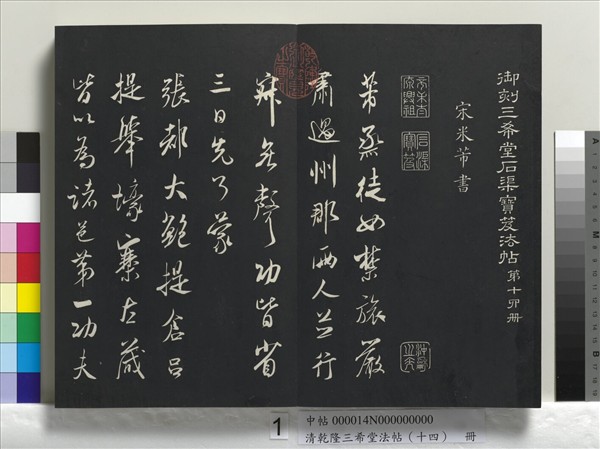 御刻三希堂石渠寶笈法帖 第十四册
宋米芾書
石渠寶笈
芾烝徒如禁旅嚴
肅過州郡兩人並行
寂無聲功皆省
三日先了蒙
張都大鮑提倉呂
提舉壕寨左藏
皆以為諸邑第一功夫
1
中帖 000014N000000000
清乾隆三希堂法帖（十四） 冊